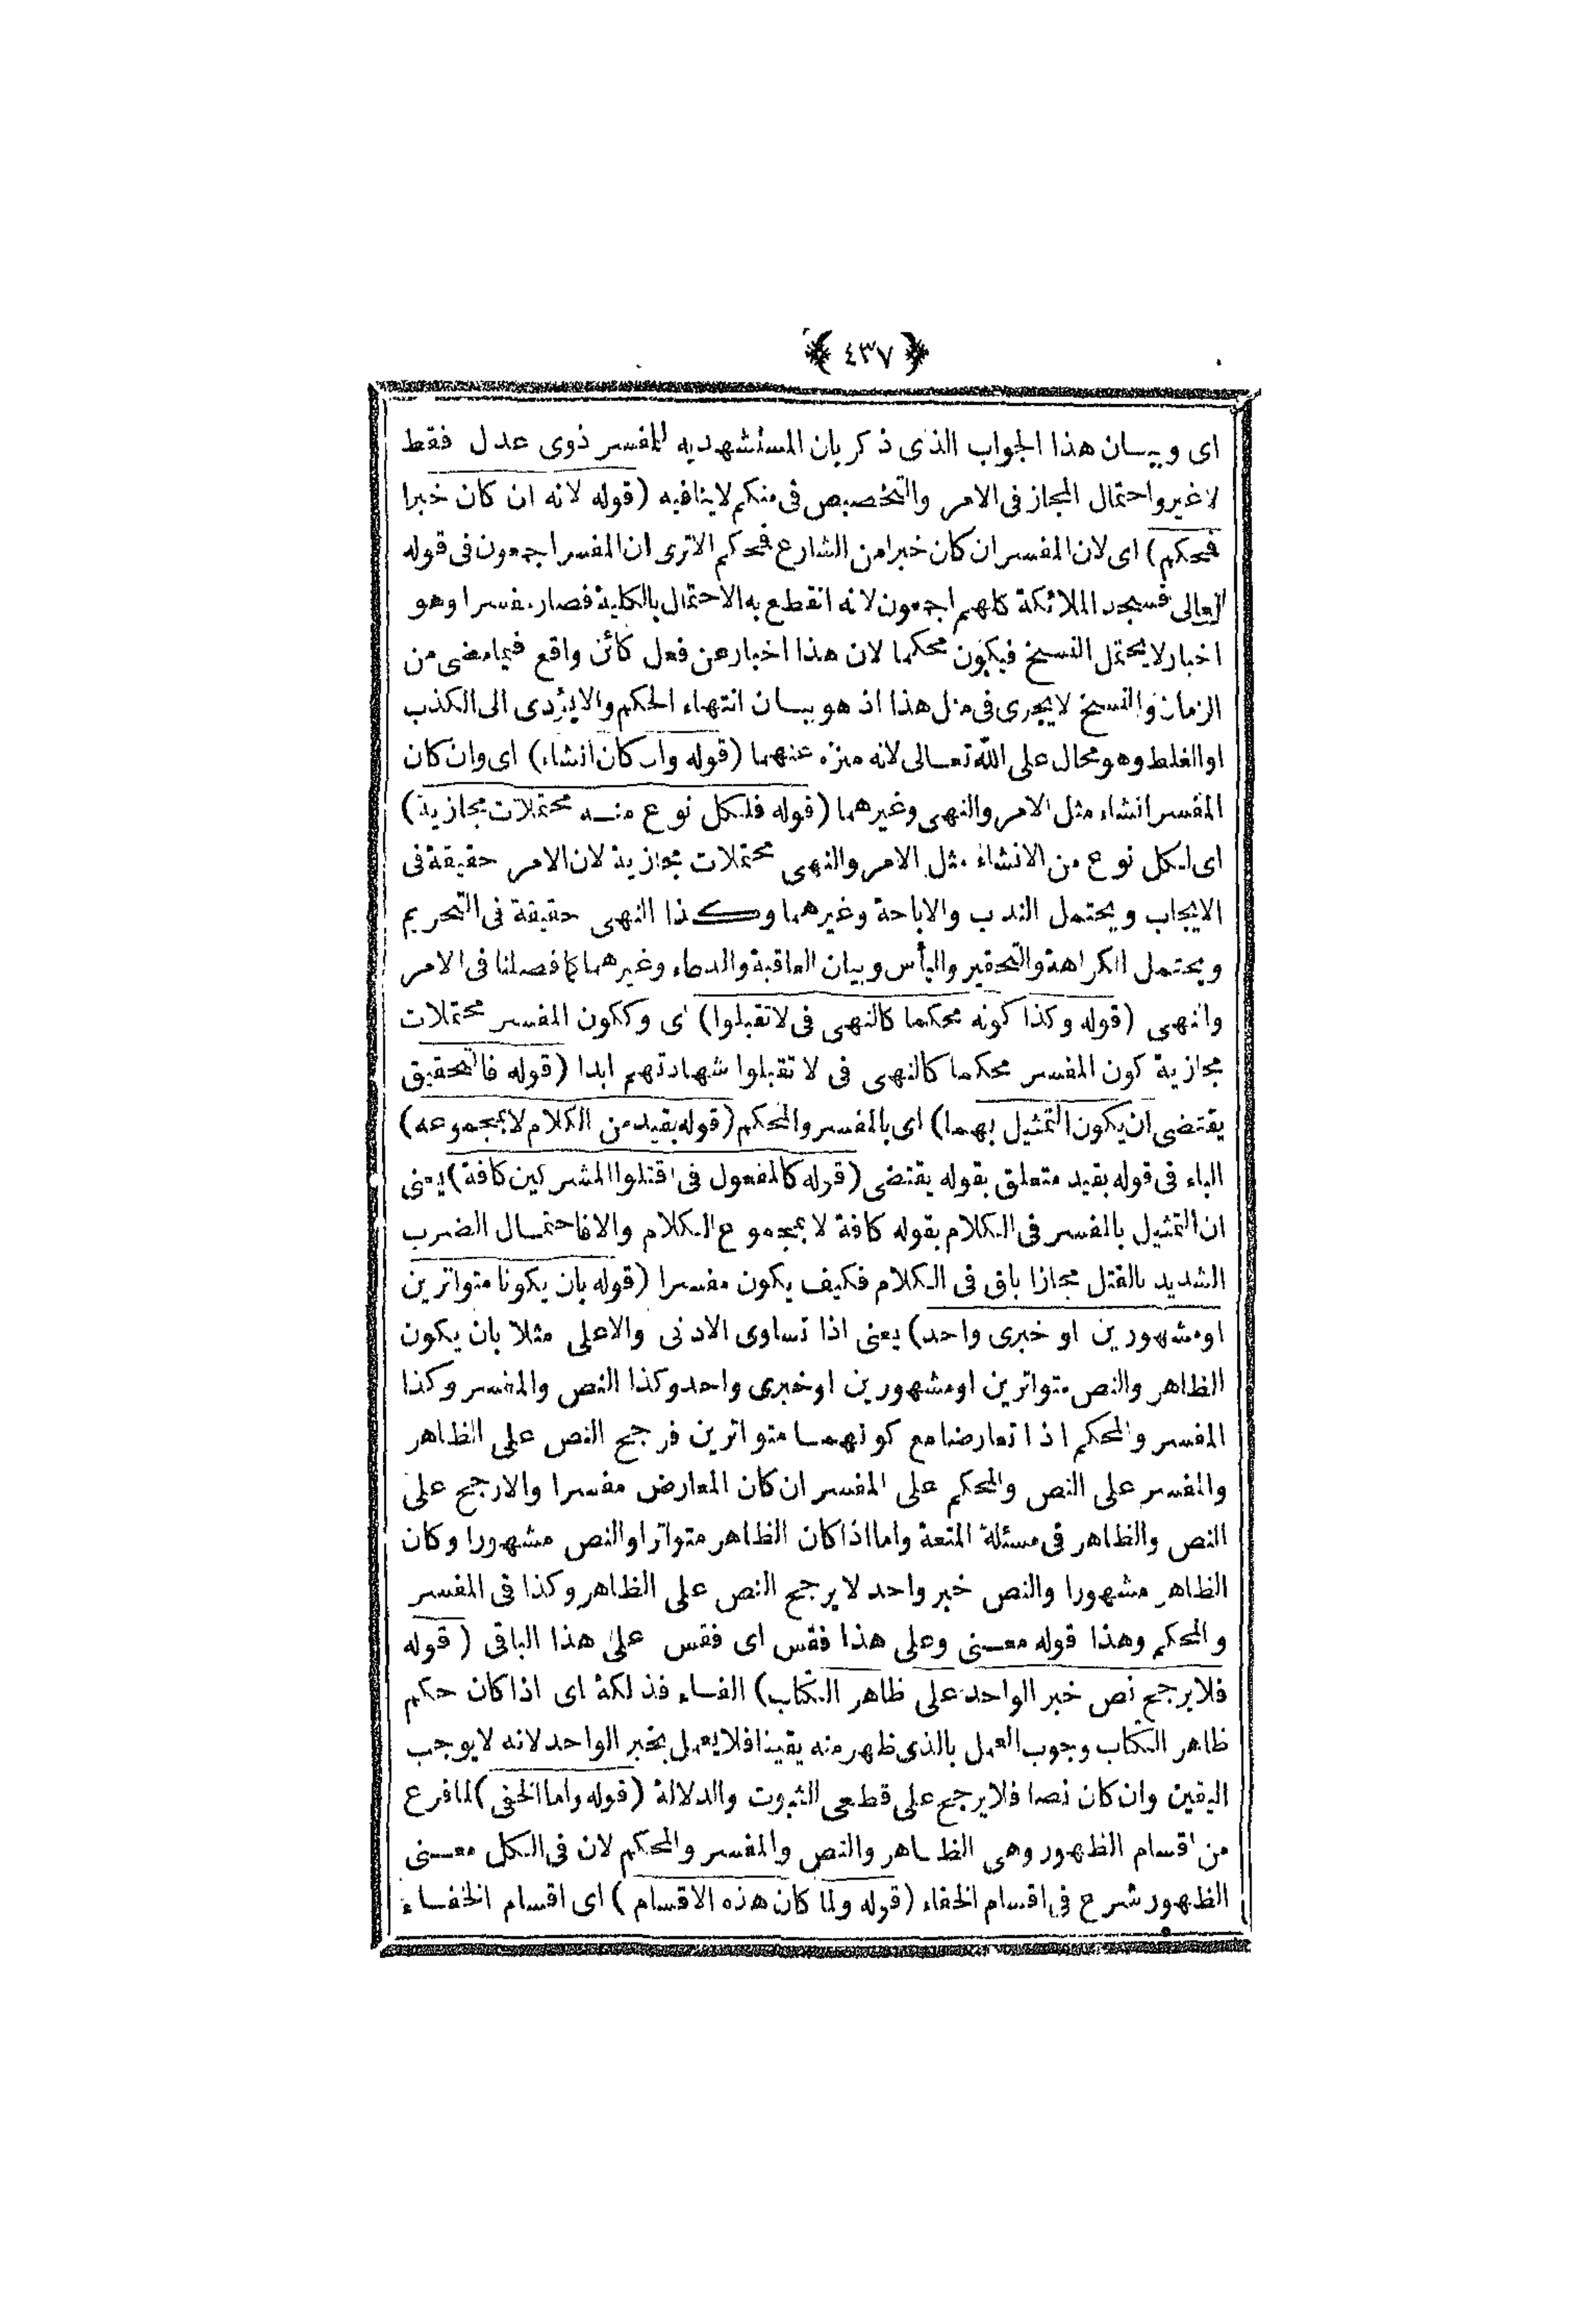 ﴿ ٤٣٧ ﴾
اى وبيان هذا الجواب الذى ذكر بان المستشهد به للمفسر ذوى عدل فقط
لاغير واحتمال المجاز فى الامر والتخصيص فى منكم لاينافيه (قوله لانه ان كان خبرا
فمحكم) اى لان المفسر ان كان خبرا من الشارع فمحكم الاترى ان المفسر اجمعون فى قوله
تعالى فسجد الملائكة كلهم اجمعون لانه انقطع به الاحتمال بالكلية فصار مفسرا وهو
اخبار لايحتمل النسخ فيكون محكما لان هذا اخبار عن فعل كائن واقع فيما مضى من
الزمان والنسخ لايجرى فى مثل هذا اذ هو بيان انتهاء الحكم والا يؤدى الى الكذب
او الغلط وهو محال على الله تعالى لانه منزه عنهما (قوله وان كان انشاء) اى وان كان
المفسر انشاء مثل الامر والنهى وغيرهما (قوله فلكل نوع منه محتملات مجازية)
اى لكل نوع من الانشاء مثل الامر والنهى محتملات مجازية لان الامر حقيقة فى
الايجاب ويحتمل الندب والاباحة وغيرهما وكذا النهى حقيقة فى التحريم
ويحتمل الكراهة والتحقير واليأس وبيان العاقبة والدعاء وغيرهما كما فصلنا فى الامر
وانهى (قوله وكذا كونه محكما كالنهى فى لاتقبلوا) اى وككون المفسر محتملات
مجازية كون المفسر محكما كالنهى فى لا تقبلوا شهادتهم ابدا (قوله فالتحقيق
يقتضى ان يكون التمثيل بهما) اى بالمفسر والمحكم (قوله بقيد من الكلام لا بمجموعه)
الباء فى قوله بقيد متعلق بقوله يقتضى (قوله كالمفعول فى اقتلوا المشركين كافة) يعنى
ان التمثيل بالمفسر فى الكلام بقوله كافة لا بمجموع الكلام والا فاحتمال الضرب
الشديد بالقتل مجازا باق فى الكلام فكيف يكون مفسرا (قوله بان يكونا متواترين
او مشهورين او خبرى واحد) يعنى اذا تساوى الادنى والاعلى مثلا بان يكون
الظاهر والنص متواترين او مشهورين او خبرى واحد وكذا النص والمفسر وكذا
المفسر والمحكم اذا تعارضا مع كونهما متواترين فرجح النص على الظاهر
والمفسر على النص والمحكم على المفسر ان كان المعارض مفسرا والارجح على
النص والظاهر فى مسئلة المتعة واما اذا كان الظاهر متواترا والنص مشهورا وكان
الظاهر مشهورا والنص خبر واحد لا يرجح النص على الظاهر وكذا فى المفسر
والمحكم وهذا قوله معنى وعلى هذا فقس اى فقس على هذا الباقى (قوله
فلا يرجح نص خبر الواحد على ظاهر الكتاب) الفاء فذلكة اى اذا كان حكم
ظاهر الكتاب وجوب العمل بالذى ظهر منه يقينا فلا يعمل بخبر الواحد لانه لا يوجب
اليقين وان كان نصا فلا يرجح على قطعى الثبوت والدلالة (قوله واما الخفى) لما فرع
من اقسام الظهور وهى الظاهر والنص والمفسر والمحكم لان فى الكل معنى
الظهور شرع فى اقسام الخفاء (قوله ولما كان هذه الاقسام) اى اقسام الخفاء